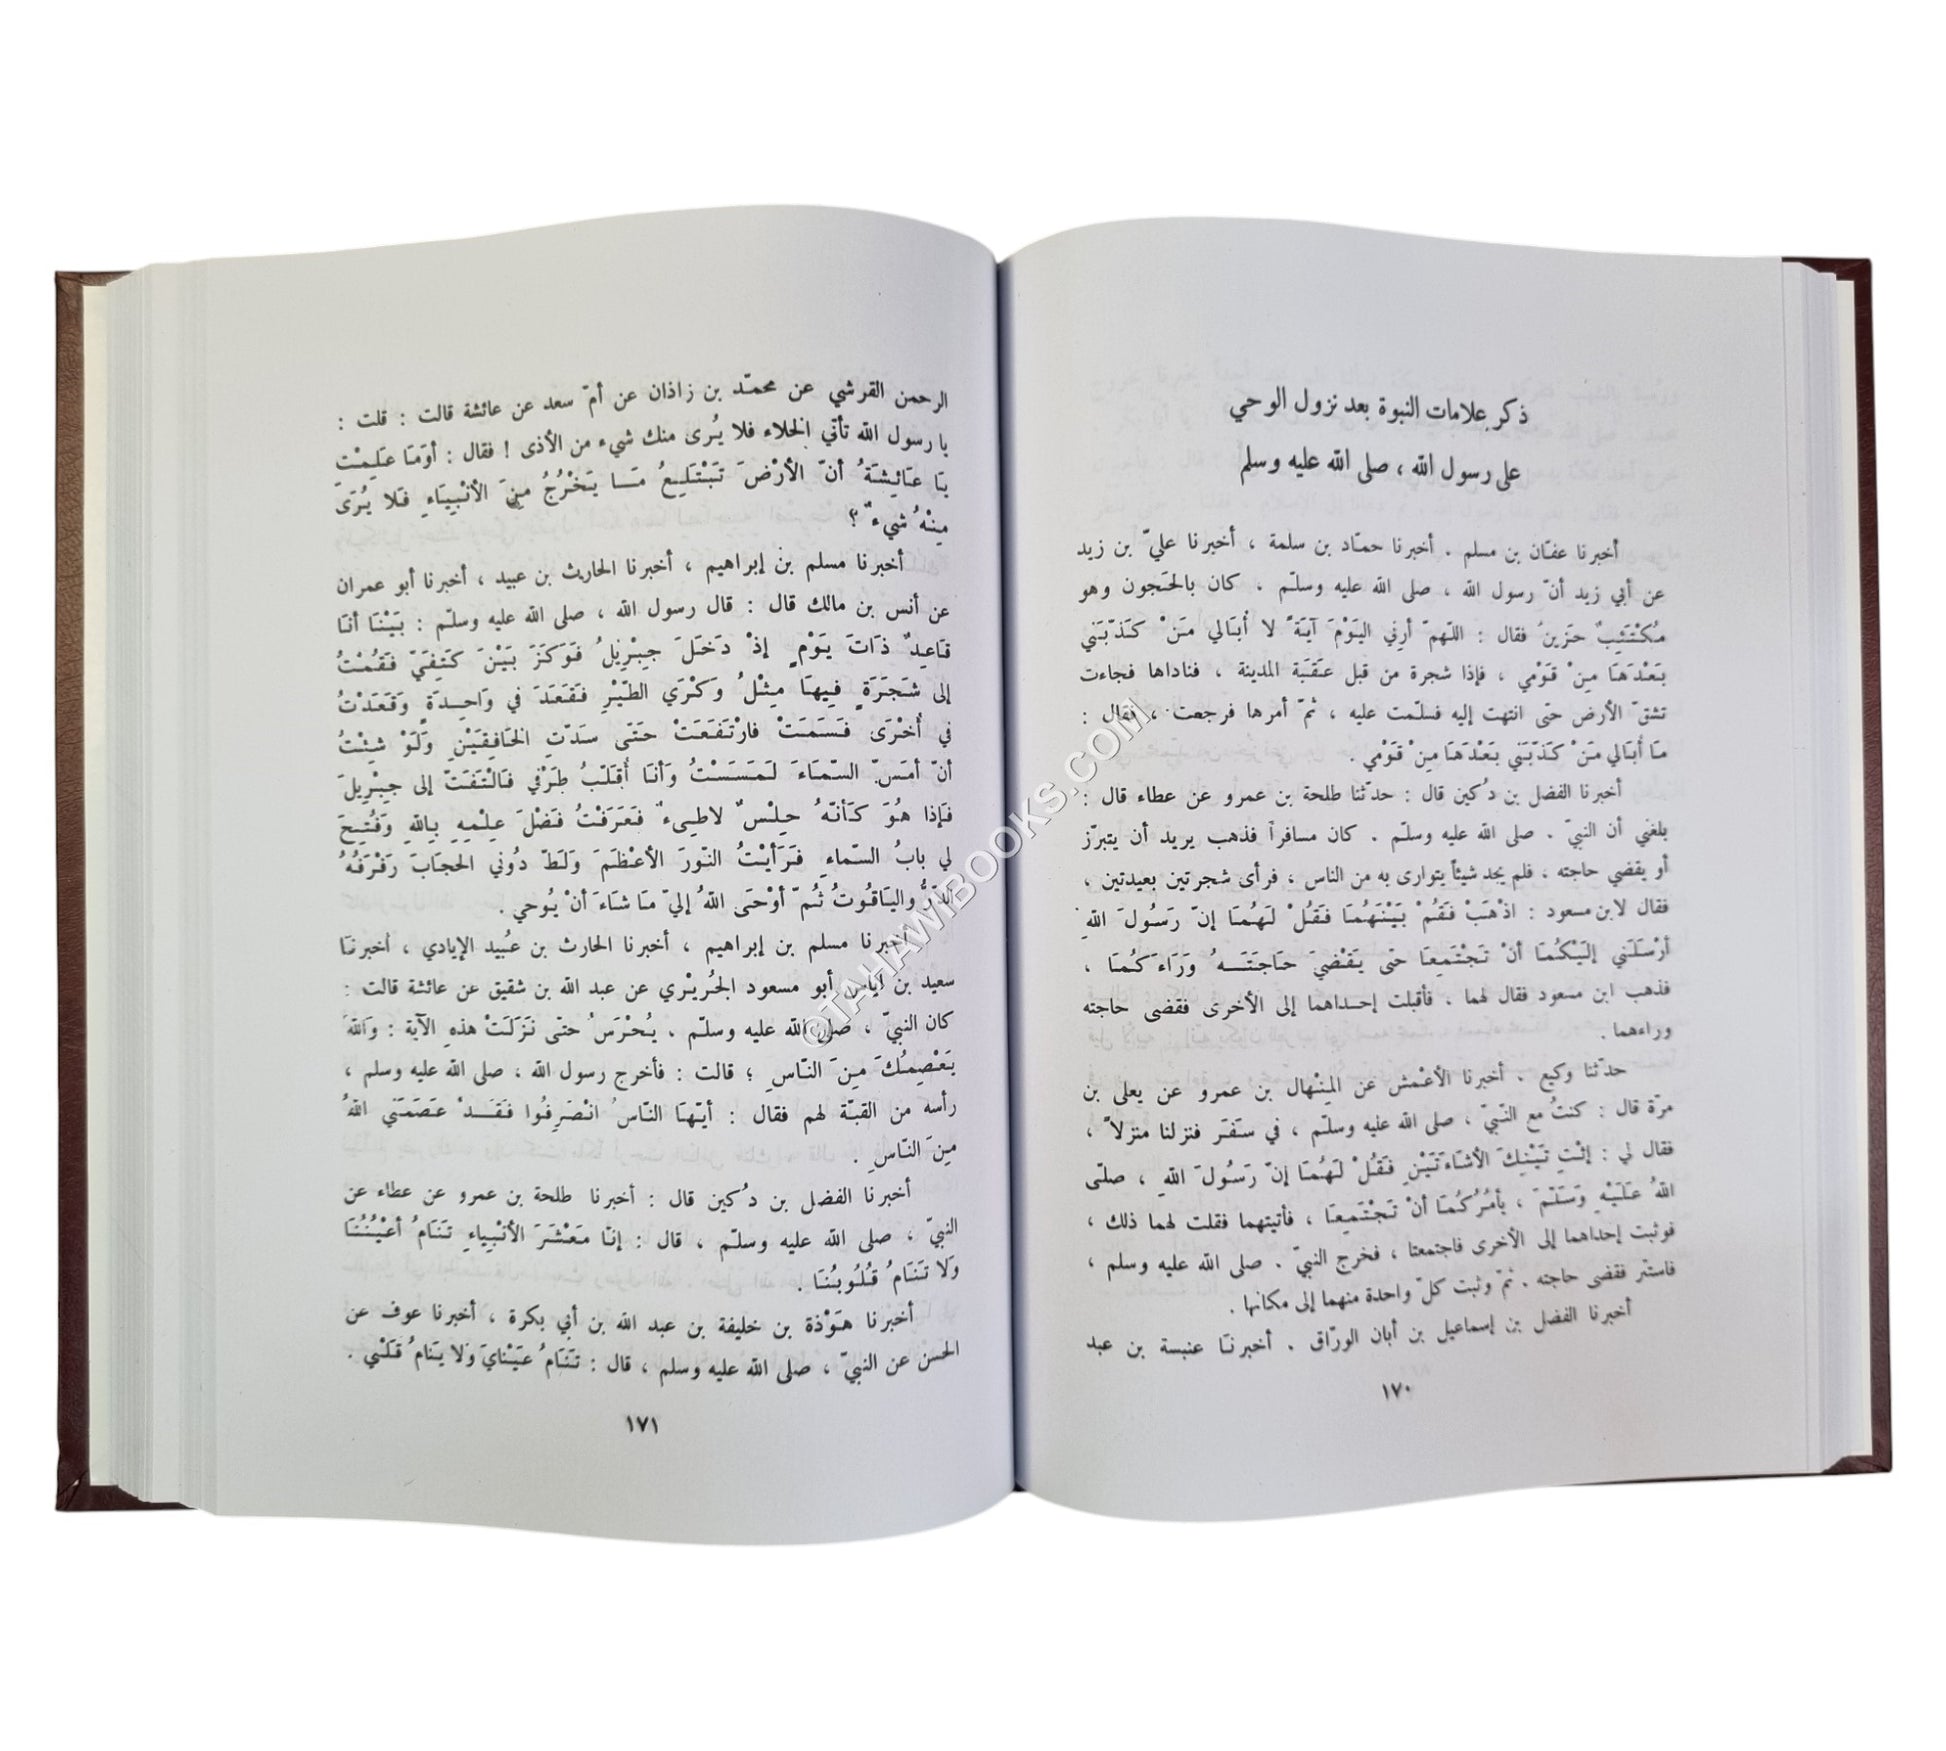 ذكر علامات النبوة بعد نزول الوحي
على رسول الله ، صلى الله عليه وسلم
أخبرنا عفّان بن مسلم . أخبرنا حمّاد بن سلمة ، أخبرنا عليّ بن زيد
عن أبي زيد أنّ رسول الله ، صلى الله عليه وسلّم . كان بالحَجون وهو
مُكْتَئِبٌ حَزين فقال : اللّهمّ أرِنِي اليَوْمَ آيَةً لا أُبَالي مَنْ كَذّبَني
بَعْدَهَا مِنْ قَوْمي ، فإذا شجرة من قبل عَقَبَة المدينة ، فناداها فجاءت
تشقّ الأرض حتى انتهت إليه فسلّمت عليه ، ثمّ أمرها فرجعت ، فقال :
مَا أُبَالي مَنْ كَذّبَني بَعْدَهَا مِنْ قَوْمي .
أخبرنا الفضل بن دُكين قال : حدّثنا طلحة بن عمرو عن عطاء قال :
بلغني أن النبيّ . صلى الله عليه وسلّم . كان مسافراً فذهب يريد أن يتبرّز
أو يقضي حاجته ، فلم يجد شيئاً يتوارى به من الناس ، فرأى شجرتين بعيدتين ،
فقال لابن مسعود : اذْهَبْ فَقُمْ بَيْنَهُمَا فَقُلْ لَهُمَا إنّ رَسُولَ اللهِ
أرْسَلَني إلَيْكُمَا أنْ تَجْتَمِعَا حتى يَقْضيَ حَاجَتَهُ وَرَاءَكُمَا ،
فذهب ابن مسعود فقال لهما ، فأقبلت إحداهما إلى الأخرى فقضى حاجته
وراءهما .
حدّثنا وكيع . أخبرنا الأعْمش عن المِنْهال بن عمرو عن يعلى بن
مرّة قال : كنتُ مع النّبيّ ، صلى الله عليه وسلّم ، في سَفَر فنزلنا منزلاً ،
فقال لي : إئْتِ تَيْنِكَ الأشَاءَتَيْنِ فَقُلْ لَهُمَا إنّ رَسُولَ اللهِ ، صلّى
اللهُ عَلَيْهِ وَسَلّمَ ، يأمُرُكُمَا أنْ تَجْتَمِعَا ، فأتيتهما فقلت لهما ذلك ،
فوثبت إحداهما إلى الأخرى فاجتمعتا ، فخرج النبيّ . صلى الله عليه وسلم ،
فاستتر فقضى حاجته . ثمّ وثبت كلّ واحدة منهما إلى مكانها .
أخبرنا الفضل بن إسماعيل بن أبان الورّاق . أخبرنا عنبسة بن عبد
١٧٠
الرحمن القرشي عن محمّد بن زاذان عن أمّ سعد عن عائشة قالت : قلت :
يا رسول الله تأتي الخلاء فلا يُرى منك شيء من الأذى ! فقال : أوَمَا عَلِمْتِ
يَا عَائِشَةُ أنّ الأرْضَ تَبْتَلِعُ مَا يَخْرُجُ مِنَ الأنْبِيَاءِ فَلا يُرَى
مِنْهُ شيءٌ ؟
أخبرنا مسلم بن إبراهيم ، أخبرنا الحارث بن عبيد ، أخبرنا أبو عمران
عن أنس بن مالك قال : قال رسول الله ، صلى الله عليه وسلّم : بَيْنَا أنَا
قَاعِدٌ ذَاتَ يَوْمٍ إذْ دَخَلَ جِبْرِيلُ فَوَكَزَ بَيْنَ كَتِفَيّ فَقُمْتُ
إلى شَجَرَةٍ فِيهَا مِثْلُ وَكْرَي الطّيْرِ فَقَعَدَ في وَاحِدَةٍ وَقَعَدْتُ
في أُخْرَى فَسَمَتْ فارْتَفَعَتْ حَتّى سَدّتِ الخَافِقَيْنِ وَلَوْ شِئْتُ
أنْ أمَسّ السّمَاءَ لَمَسَسْتُ وَأنَا أُقَلّبُ طَرْفي فَالْتَفَتّ إلى جِبْرِيلَ
فَإذا هُوَ كَأنّهُ حِلْسٌ لاطِىءٌ فَعَرَفْتُ فَضْلَ عِلْمِهِ بِاللهِ وَفُتِحَ
لي بابُ السّماءِ فَرَأيْتُ النّورَ الأعْظَمَ وَلَطّ دُوني الحجَابَ رَفْرَفُهُ
الدّرُّ واليَاقُوتُ ثُمّ أوْحَى اللهُ إليّ مَا شَاءَ أنْ يُوحي .
أخبرنا مسلم بن إبراهيم ، أخبرنا الحارث بن عُبيد الإيادي ، أخبرنا
سعيد بن اياس أبو مسعود الجُريْري عن عبد الله بن شقيق عن عائشة قالت :
كان النبيّ ، صلى الله عليه وسلّم . يُحْرَسُ حتى نَزَلَتْ هذه الآية : وَاللهُ
يَعْصِمُكَ مِنَ النّاسِ ؛ قالت : فأخرج رسول الله ، صلى الله عليه وسلم ،
رأسه من القبّة لهم فقال : أيّهَا النّاسُ انْصَرِفُوا فَقَدْ عَصَمَني اللهُ
مِنَ النّاسِ .
أخبرنا الفضل بن دُكين قال : أخبرنا طلحة بن عمرو عن عطاء عن
النبيّ ، صلى الله عليه وسلّم ، قال : إنّا مَعْشَرَ الأنْبِياءِ تَنَامُ أعْيُنُنَا
وَلا تَنَامُ قُلُوبُنَا .
أخبرنا هَوْذة بن خليفة بن عبد الله بن أبي بكرة ، أخبرنا عوف عن
الحسن عن النبيّ ، صلى الله عليه وسلم ، قال : تَنَامُ عَيْنايَ وَلا يَنامُ قَلْبي .
١٧١
©TAHAWIBOOKS.COM